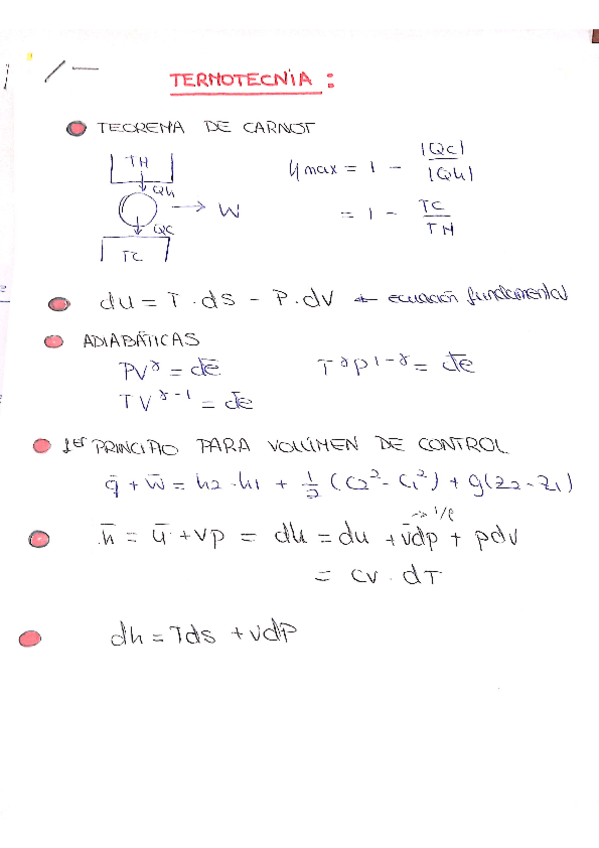 TERMOTECNIA :
TEOREMA DE CARNOT
TH
Qh
W
QC
TC
ηmax = 1 - |Qc| / |Qh|
= 1 - TC / TH
du = T.ds - P.dV ← ecuación fundamental
ADIABÁTICAS
PV^γ = cte
T^γ P^1-γ = cte
TV^γ-1 = cte
1er PRINCIPIO PARA VOLÚMEN DE CONTROL
q̄ + w̄ = h2 - h1 + 1/2 (C2² - C1²) + g(z2 - z1)
→ 1/ρ
h̄ = ū + vp = dh = du + vdp + pdv
= cv . dT
dh = Tds + vdP